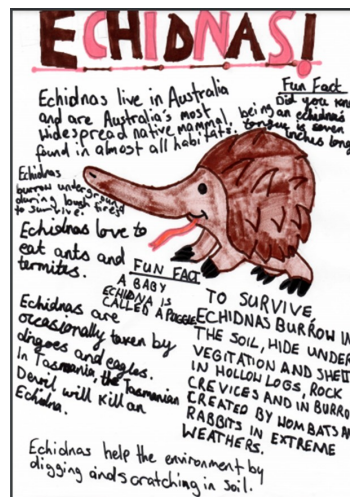 ECHIDNAS!
Echidnas live in Australia
and are Australia's most
widespread native mammal, being
found in almost all habitats.
Fun Fact
Did you
an echidna's
tongue is seven
inches long
Echidnas
burrow underground
during bush fires
to survive.
Echidnas love to
eat ants and
termites.
FUN FACT
A BABY
ECHIDNA IS
CALLED A PUGGLE
Echidnas are
occasionally taken by
dingoes and eagles.
In Tasmania, the Tasmanian
Devil will kill an
Echidna.
TO SURVIVE,
ECHIDNAS BURROW IN
THE SOIL, HIDE UNDER
VEGITATION AND
IN HOLLOW LOGS, ROCK
CREVICES AND IN
CREATED BY WOMBATS
RABBITS IN EXTREME
WEATHERS.
Echidnas help the environment by
digging and scratching in soil.